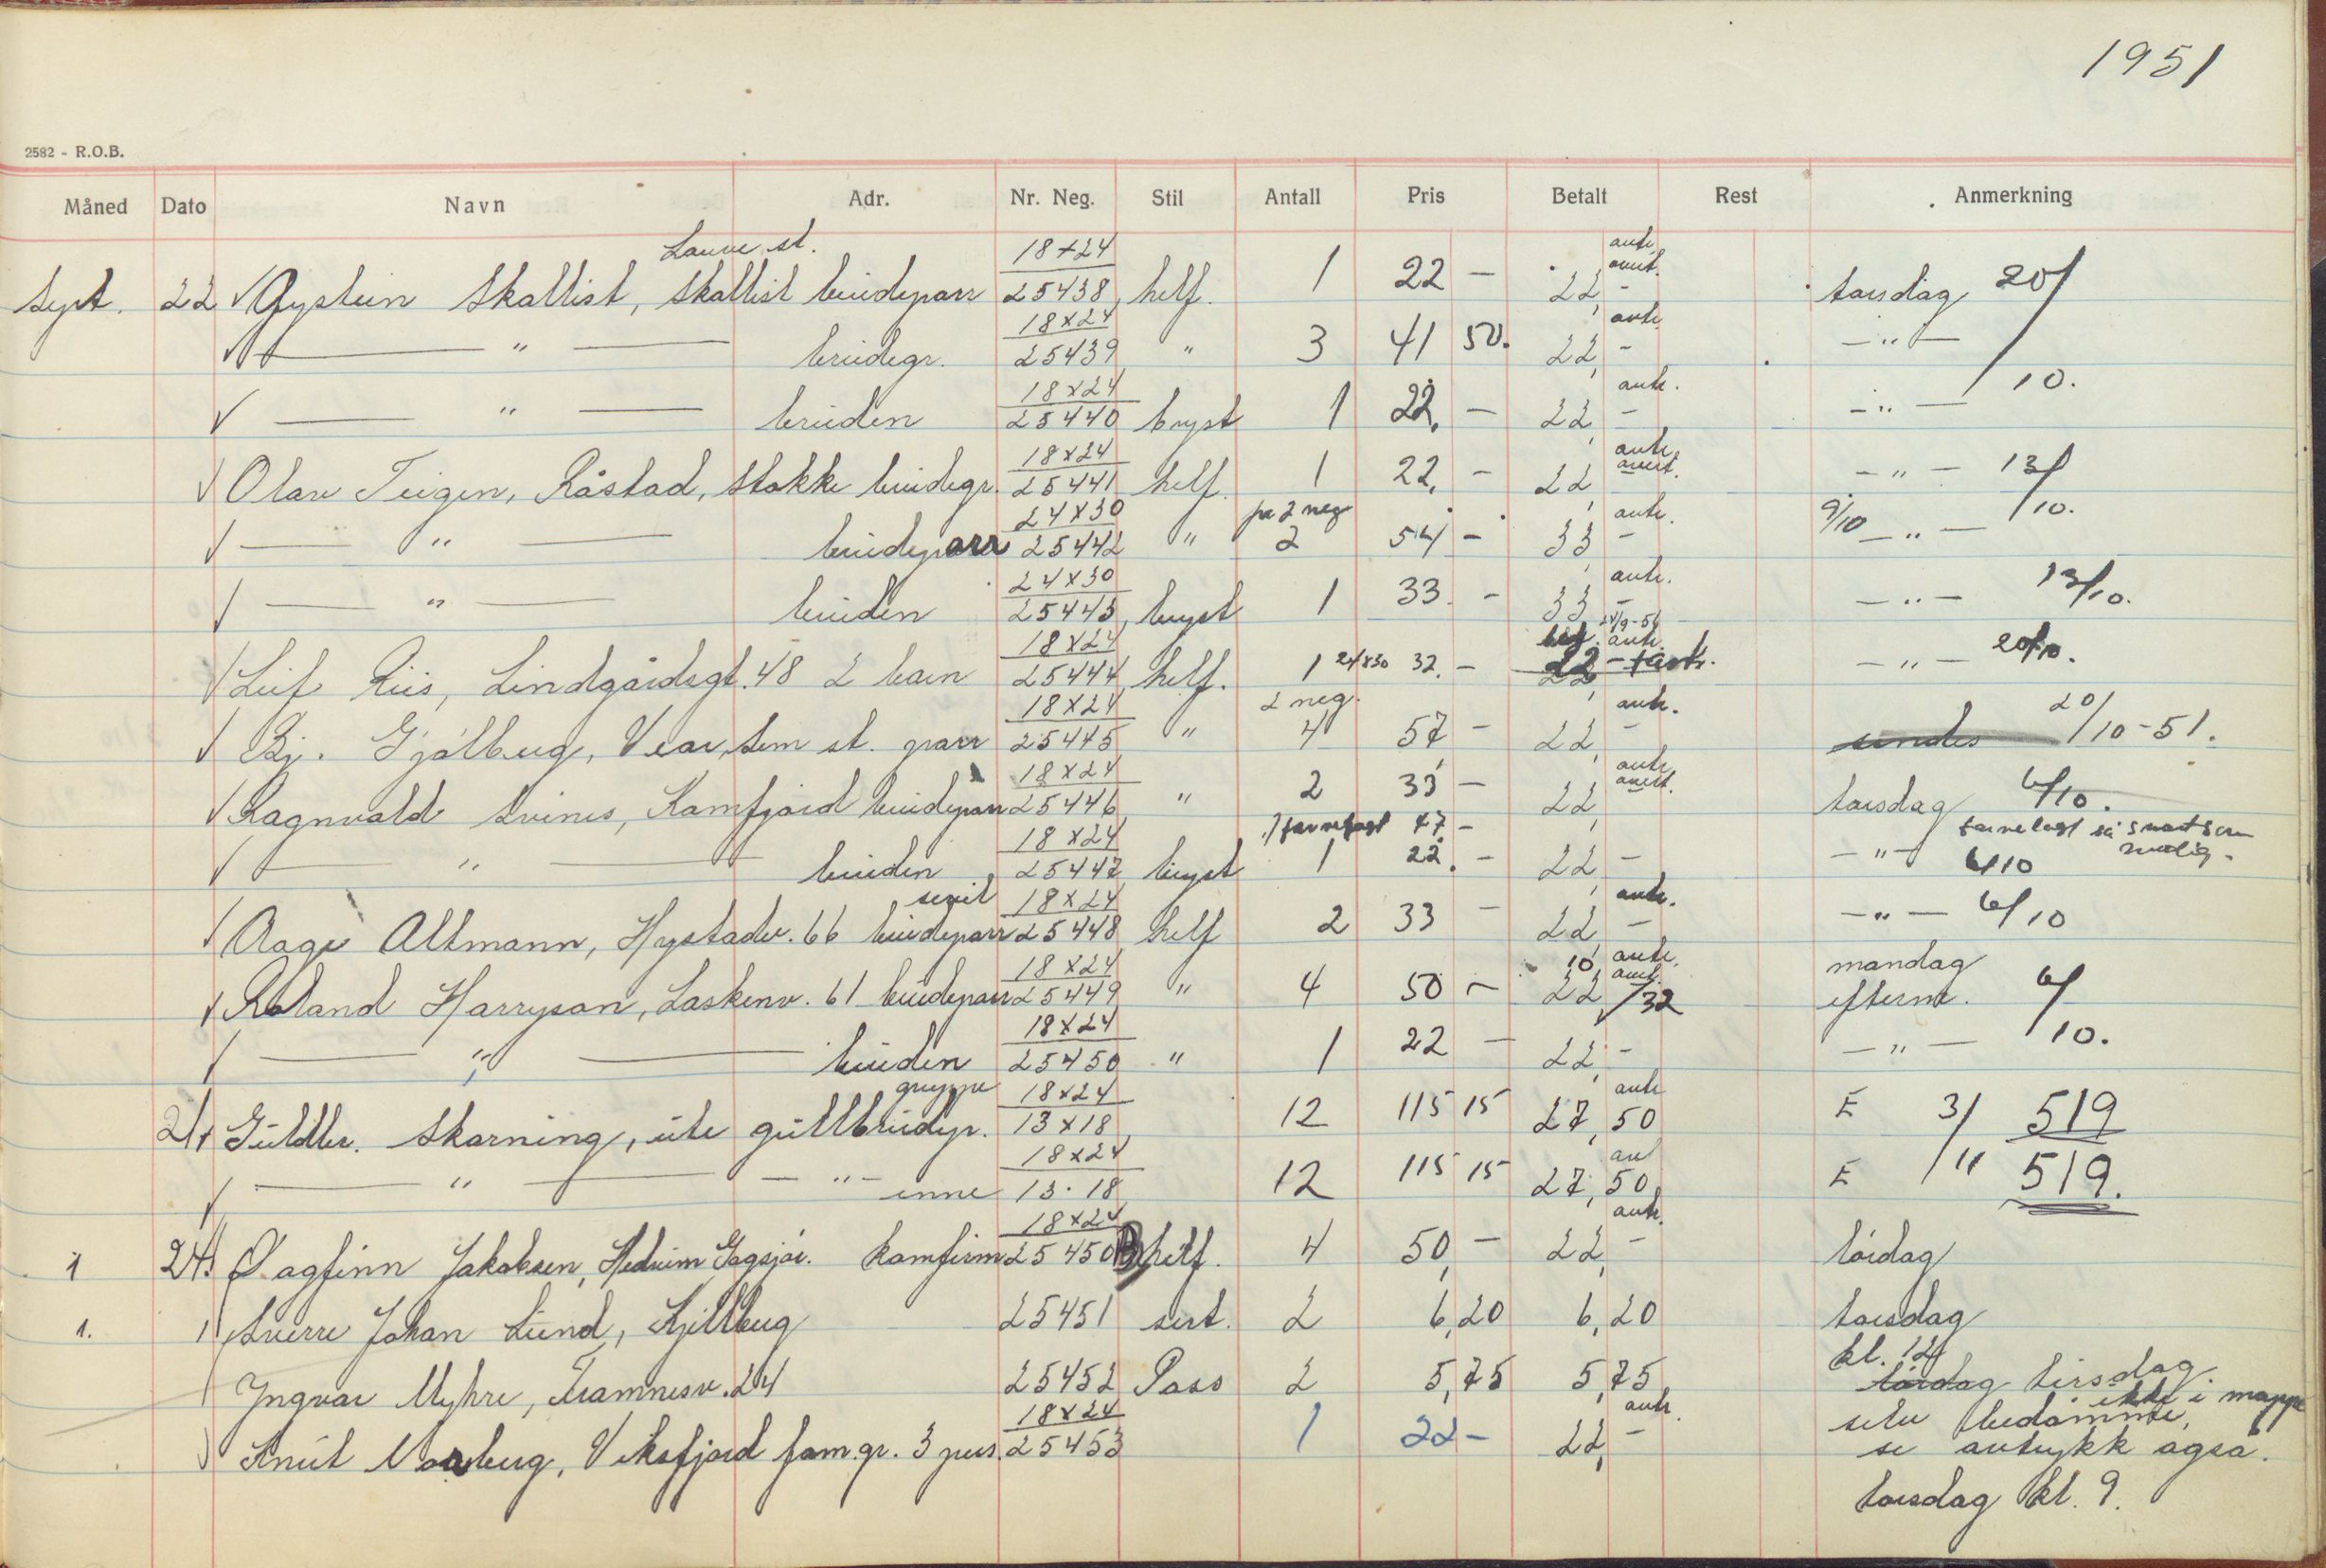 1951
2582 - R.O.B.
Måned Dato Navn Adr. Nr. Neg. Stil Antall Pris Betalt Rest Anmerkning
Lauve st. 18x24 antr.
Sept. 22 Øystein Skallist, Skallist brudeparr 25438 helf. 1 22 - 22,- torsdag 20/10.
18x24 antr.
— " — brudegr. 25439 " 3 41 50. 22,- — " —
18x24 antr.
— " — bruden 25440 bryst 1 22, - 22,- — " —
18x24 antr.
Olav Teigen, Råstad, Stokke brudegr. 25441 helf. 1 22, - 22, — " — 13/10.
24x30 pr 2 neg antr.
— " — brudeparr 25442 " 2 54 - 33,- 9/10 — " —
24x30 antr.
— " — bruden 25443 bryst 1 33 - 33,- — " — 13/10.
18x24 antr.
Leif Riis, Lindgårdsgt. 48 2 barn 25444 helf. 1 24x30 32. - 22 — " — 20/10.
18x24 2 neg. antr.
Bj. Gjølberg, Vear, Sem st. parr 25445 " 4 57, - 22,- sendes 20/10-51.
18x24 antr.
Ragnvald Svines, Kamfjord brudeparr 25446 " 2 33 - 22, torsdag 6/10.
18x24 1 farvelagt 47,- farvelagt så snart som mulig.
— " — bruden 25447 bryst 1 22. - 22,- — " — 6/10
sivil 18x24 antr.
Aage Altmann, Hystadv. 66 brudeparr 25448 helf 2 33 - 22,- — " — 6/10
18x24 10, antr. mandag
Roland Harryson, Laskenv. 61 brudeparr 25449 " 4 50 - 22,/32 efterm. 6/10.
18x24
— " — bruden 25450 " 1 22 - 22,- — " —
gruppe 18x24 antr
21 Guldbr. Skorning, ute gullbrudep. 13x18 12 115 15 27,50 E 3/11 519
18x24
— " — — " — inne 13.18 12 115 15 27,50 E 519.
18x24 antr.
1 24. Dagfinn Jakobsen, Hedrum konfirm 25450B helf. 4 50,- 22,- lördag
1. Sverre Johan Lund, Kjellberg 25451 sert. 2 6,20 6,20 torsdag
kl. 12
Yngvar Myhre, Framnesv. 24 25452 Pass 2 5,75 5,75 lördag tirsdag
18x24 antr. ikke i mappe
Knut Norberg, Viksfjord fam.gr. 3 pers. 25453 1 22 - 22,- selv bedömme,
se avtrykk også.
torsdag kl. 9.